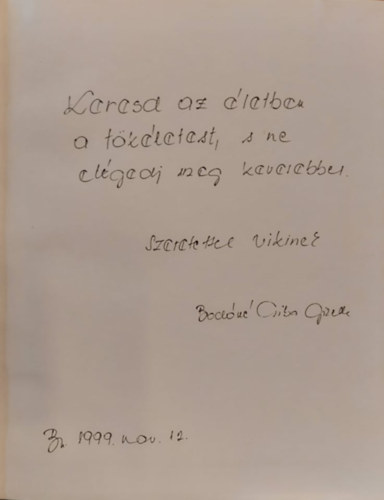 Keresd az életben
a tökéletest, s ne
elégedj meg kevesebbel.
Szeretettel Vikinek
Bodóné Csiba Gizella
Bp. 1999. nov. 12.